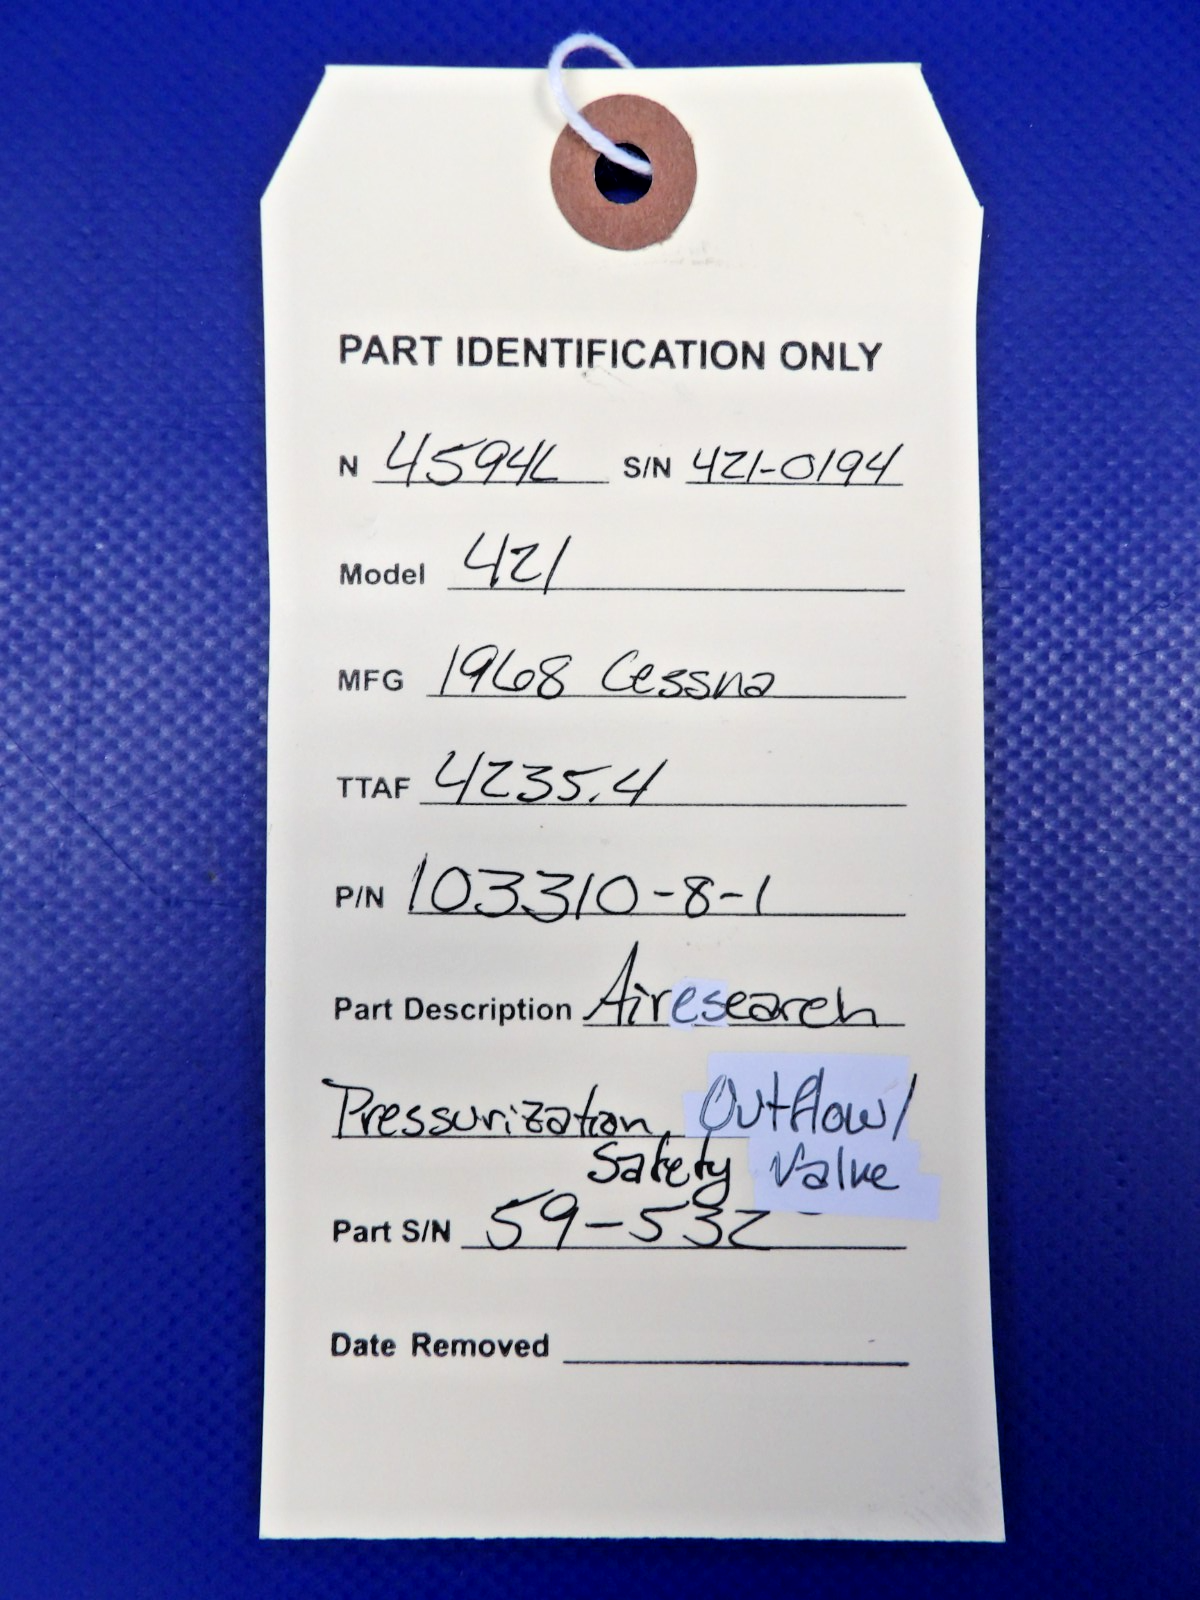 PART IDENTIFICATION ONLY
N 4594L S/N 421-0194
Model 421
MFG 1968 Cessna
TTAF 4235.4
P/N 103310-8-1
Part Description Airesearch
Pressurization Outflow/
Safety Valve
Part S/N 59-532
Date Removed